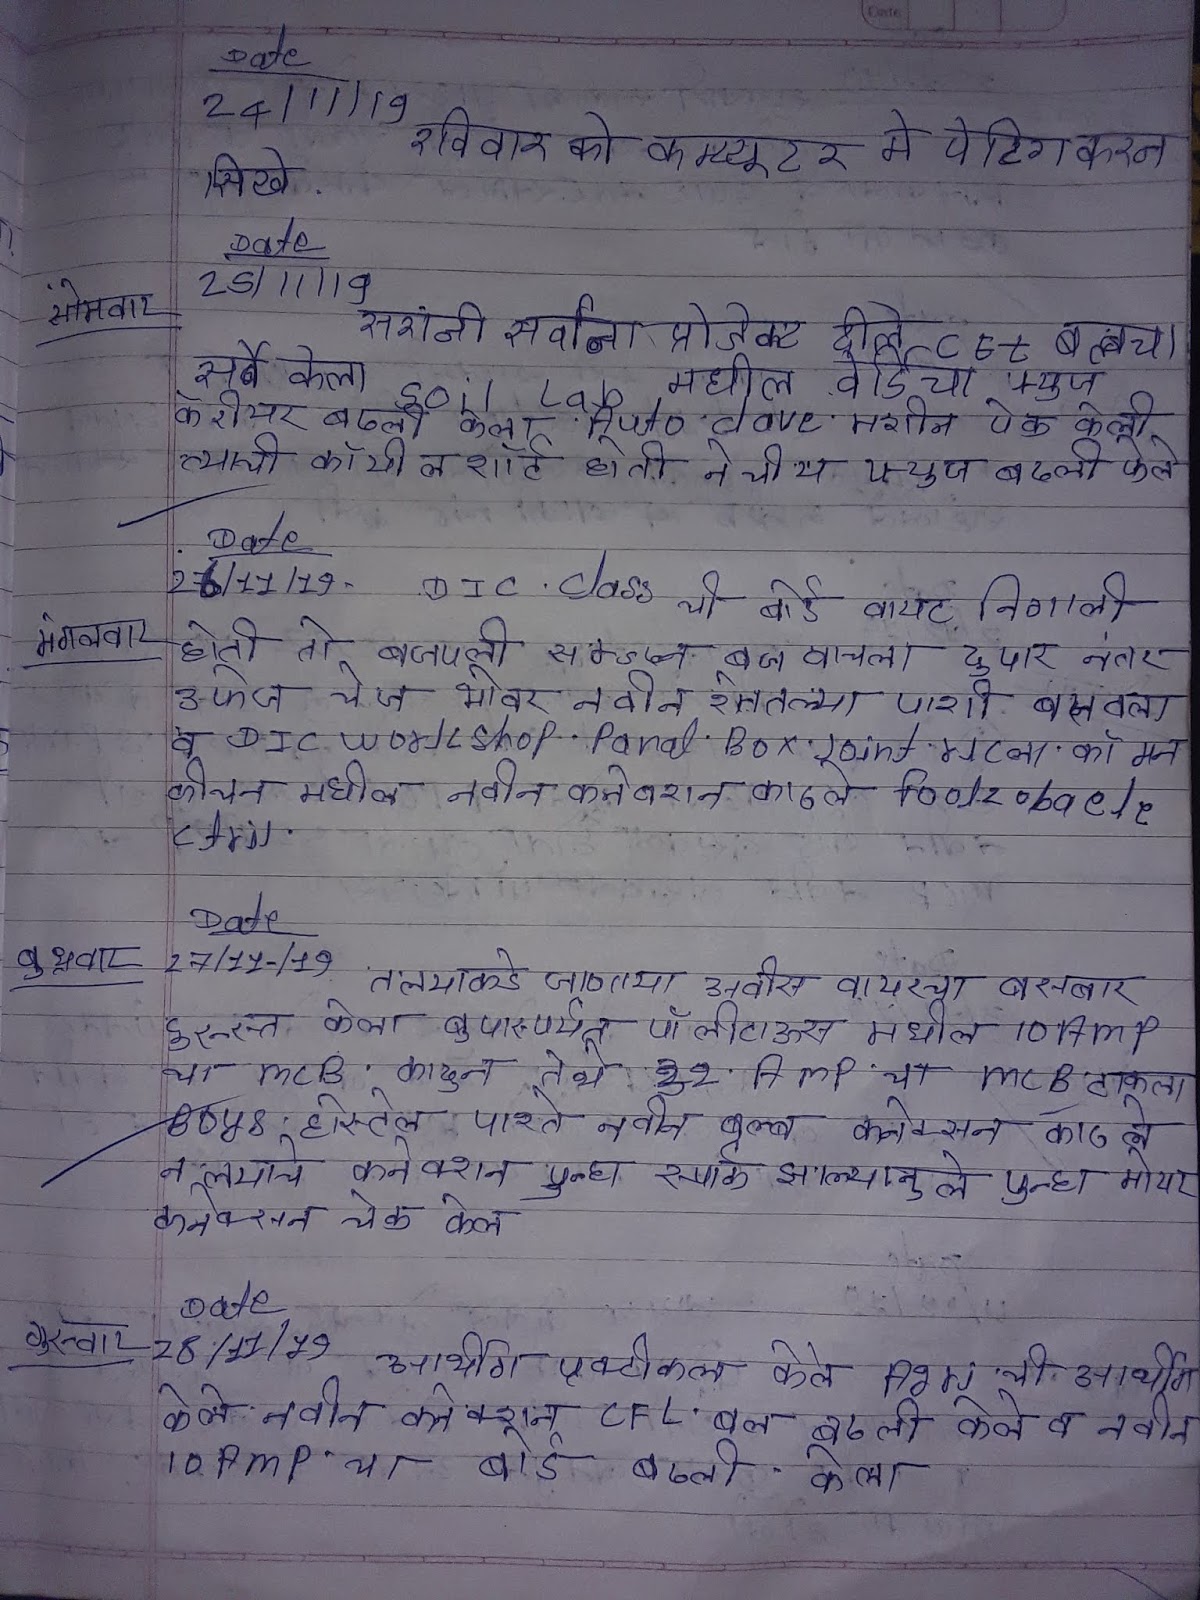 Date
Date
24/11/19
रविवार को कम्प्यूटर मे पेटिंग करन
सिखे.
Date
25/11/19
सोमवार
सरांनी सर्वांना प्रोजेक्ट दीले CFL बल्बचा
सर्वे केला Soil Lab मधील बोर्डचा फ्युज
केरीयर बदली केला Auto clave मशीन चेक केली
त्याची कॉयील शॉर्ट होती नेचीय फ्युज बदली केले
Date
26/11/19. DIC. Class ची बोर्ड वायर निगाली
मंगलवार
होती तो बजपली दुपार नंतर
उफेज चेंज ओवर नवीन शेततल्या पाशी बसवला
व DIC workshop. Panal. Box. Joint. मारला. कॉमन
कीचन मधील नवीन कनेक्शन काढले
Date
बुधवार
27/11/19
तलयाकडे जाणाया अर्वीस वायरचा बसबार
दुरुस्त केला दुपारपर्यंत पॉलीहाऊस मधील 10 AMP
चा MCB. काढुन तेथे 32. AMP चा MCB टाकला
Boys. होस्टेल पास्ते नवीन बल्ब कनेक्सन काढले
तलयाचे कनेक्शन पुन्हा स्पार्क झाल्यामुले पुन्हा मोटर
कनेक्सन चेक केल
Date
गुरुवार
28/11/19
आर्थींग प्रक्टीकल केले ची आर्थींग
केले. नवीन कनेक्शन CFL. बल बदली केले व नवीन
10 AMP. चा बोर्ड बदली. केला